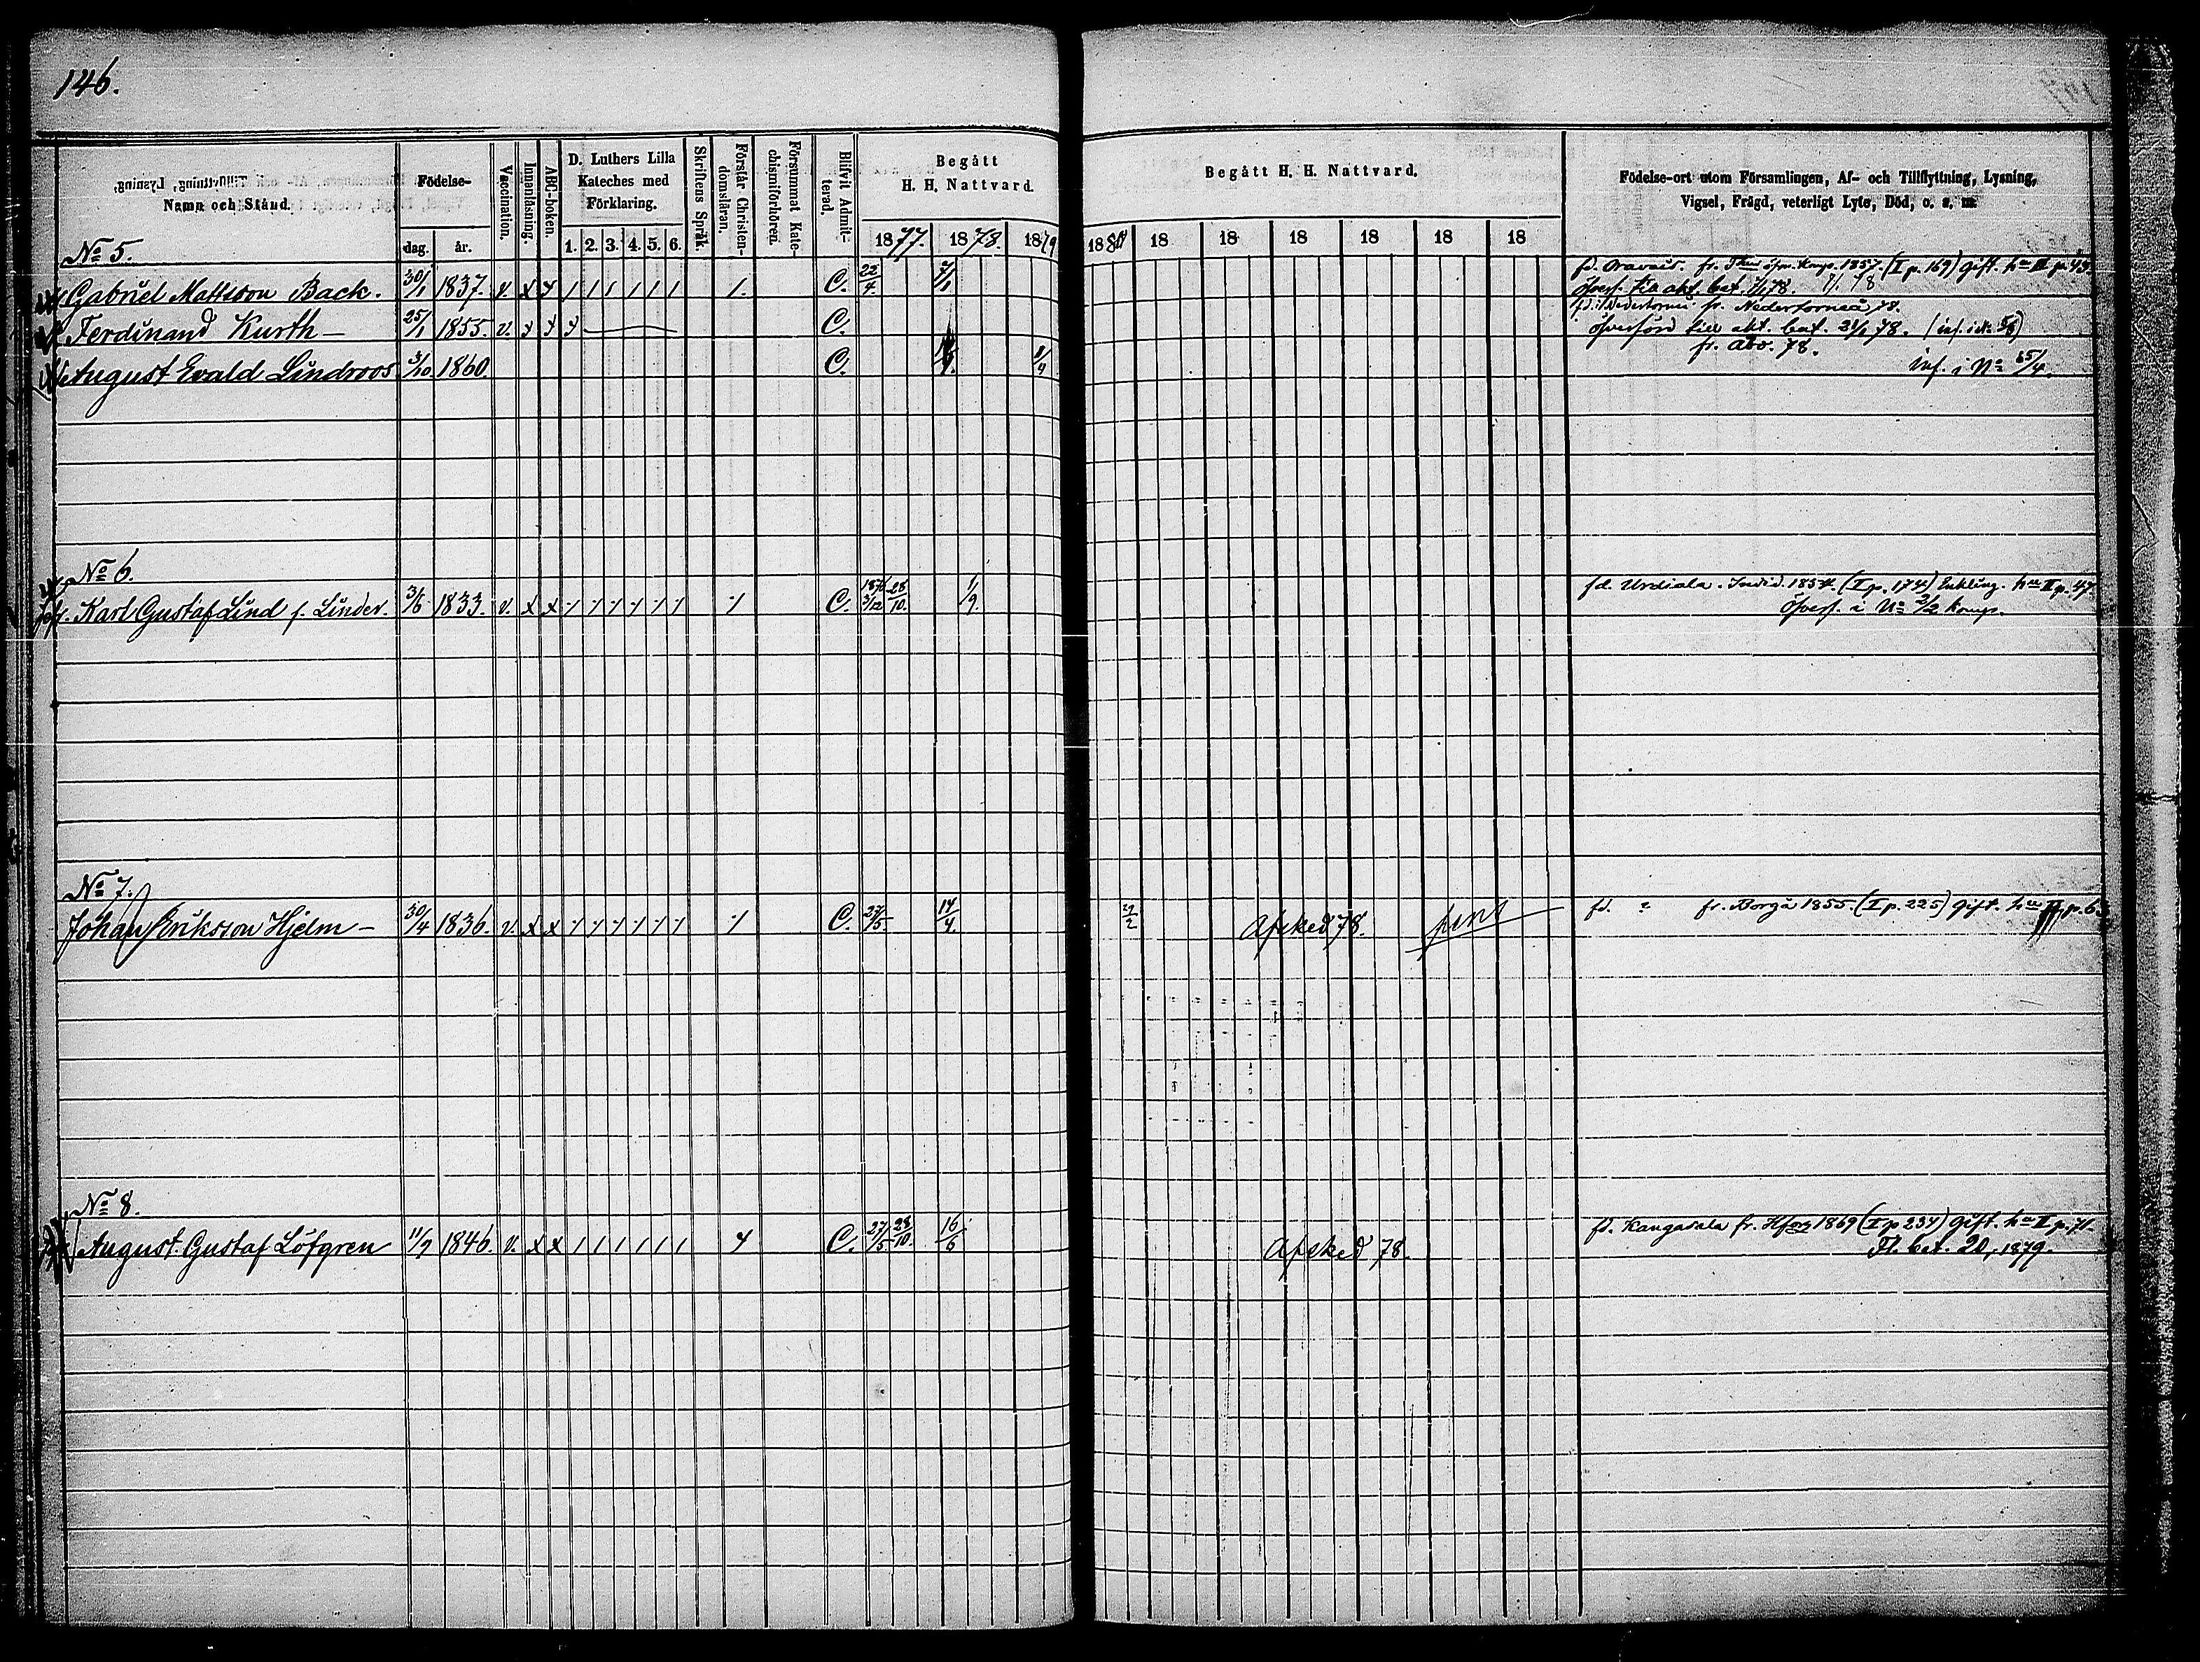 146.
Namn och Stånd.
Födelse-
dag.
år.
Vaccination.
Innanläsning.
ABC-boken.
D. Luthers Lilla
Kateches med
Förklaring.
1. 2. 3. 4. 5. 6.
Skriftens Språk.
Förstår Christen-
domsläran.
Försummat Kate-
chismiförhören.
Blifvit Admit-
terad.
Begått
H. H. Nattvard.
1877. 1878. 1879
Begått H. H. Nattvard.
1880 18 18 18 18 18 18
Födelse-ort utom Församlingen, Af- och Tillflyttning, Lysning,
Vigsel, Frägd, veterligt Lyte, Död, o. s. m.
No 5.
Gabriel Mattsson Back. 30/1 1837. v. x x / / / / / / /. C. 22/4. 7/1 fd. Oravais. fr. 1857. (I p. 169) gift. h:n II p. 43.
öfverf. till akt. bat. 1/1 78.
Ferdinand Kurth — 25/1 1855. v. x x x C. fd. i Nedertorneå fr. Nedertorneå 78.
öfverförd till akt. bat. 21/1 78. (inf. i No 5/8)
August Evald Lindroos 3/10 1860. C. fr. Åbo. 78.
inf. i No 65/4.
No 6.
Karl Gustaf Lind f. Linder. 3/6 1833. v. x x C. 1876 3/12 28/10. 1/9. fd. Urdiala. 1854 (I p. 174) Enkling. h:n II p. 47.
öfverf. i No 2/2 komp.
No 7.
Johan Eriksson Hjelm — 30/4 1836. v. x x C. 27/5. 14/4. Afsked 78. fd. ? fr. Borgå 1855 (I p. 225) gift. h:n II p. 63
No 8.
August Gustaf Löfgren 11/9 1846. v. x x / / / / / / C. 27/5 28/10. 16/6 Afsked 78. fd. Kangasala fr. Hfors 1869 (I p 234) gift. h:n II p. 71.
Fl. bet. 20, 1879.